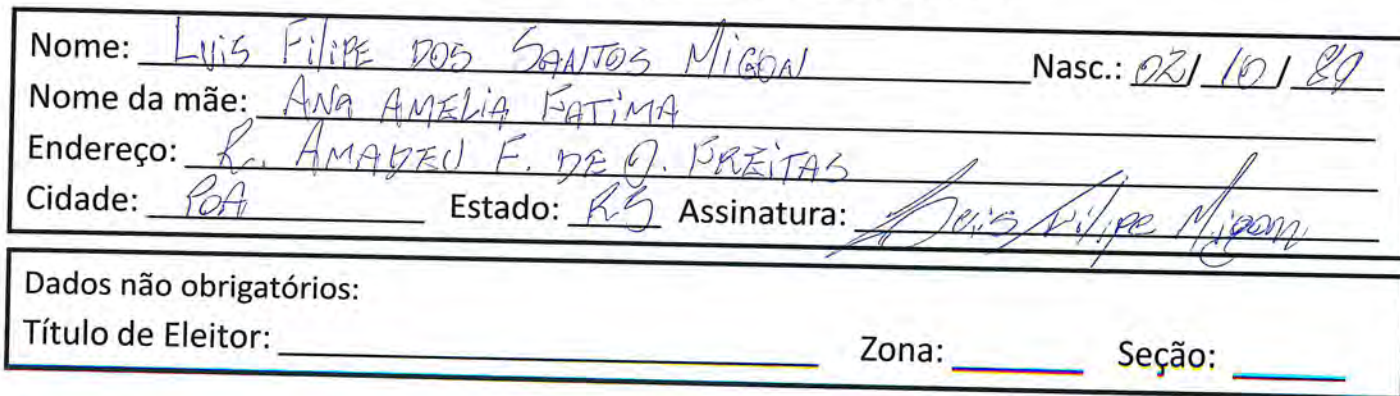 Nome: Luis Filipe dos Santos Migon Nasc.: 02/10/89
Nome da mãe: Ana Amelia Fatima
Endereço: R. Amadeu F. de O. Freitas
Cidade: POA Estado: RS Assinatura: Luis Filipe Migon
Dados não obrigatórios:
Título de Eleitor: Zona: Seção: